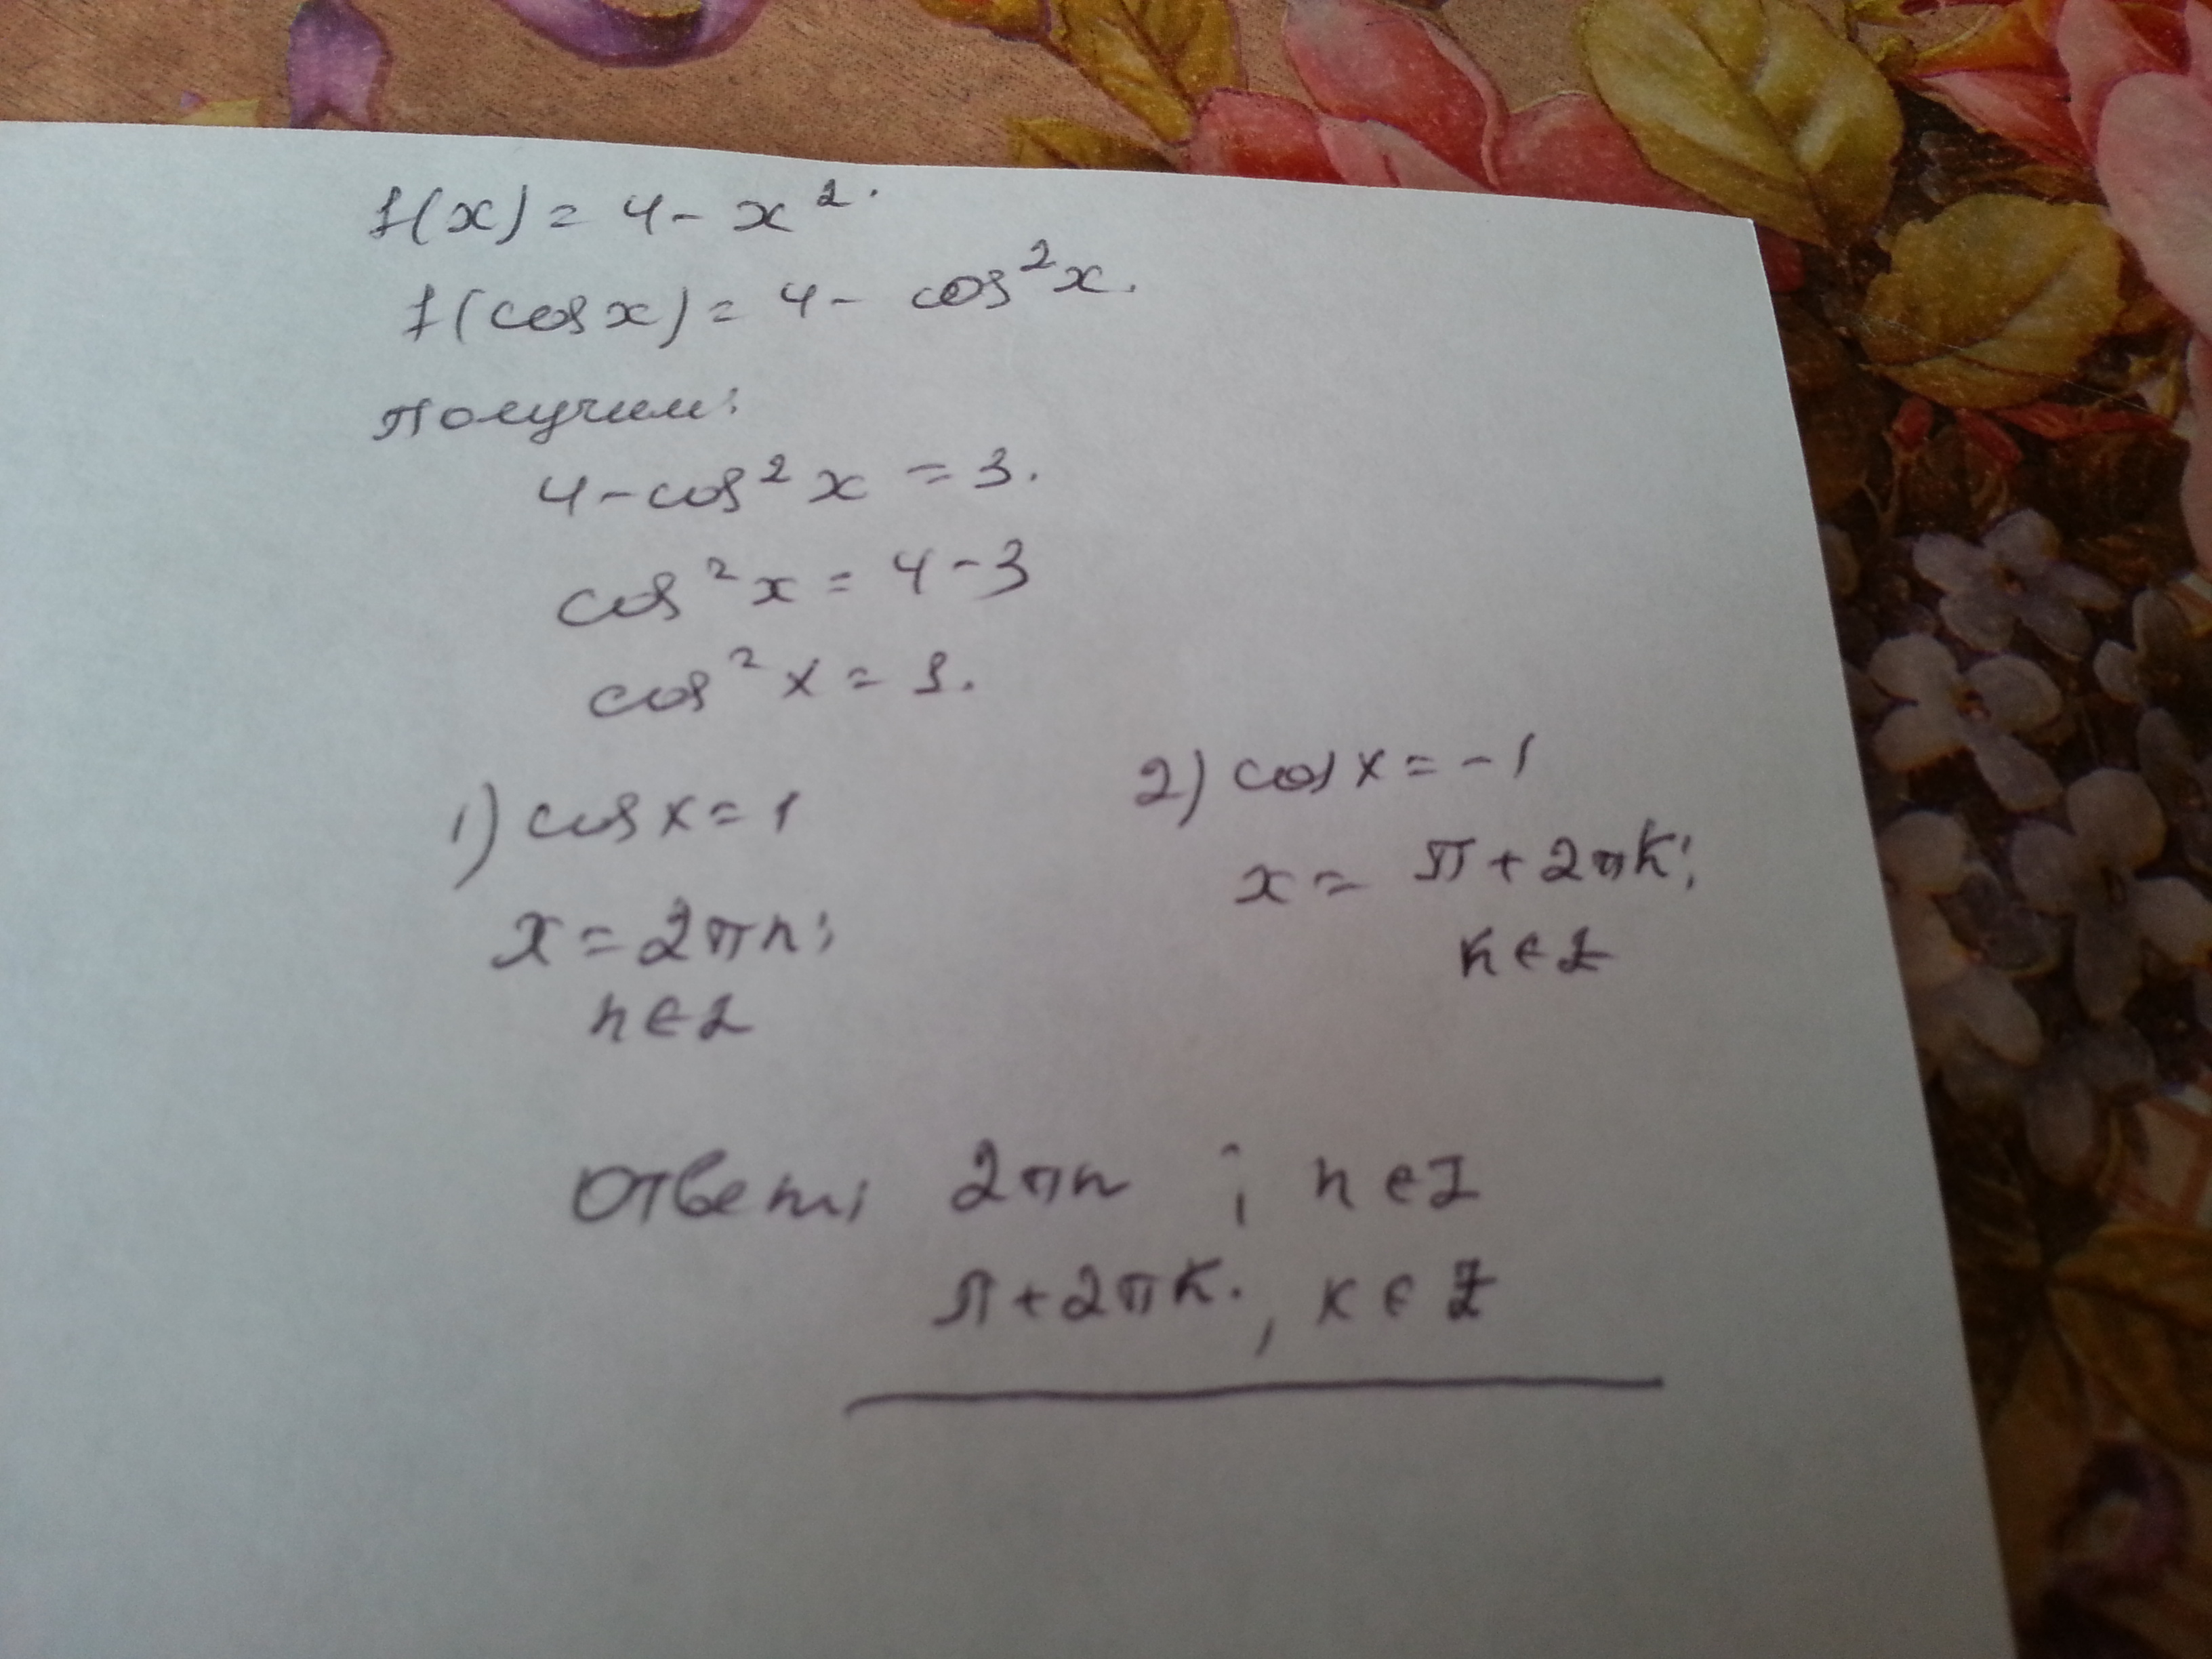 f(x) = 4 - x².
f(cos x) = 4 - cos²x.
получим:
4 - cos²x = 3.
cos²x = 4 - 3
cos²x = 1.
1) cos x = 1
x = 2πn;
n ∈ Z
2) cos x = -1
x = π + 2πk;
k ∈ Z
Ответ: 2πn ; n ∈ Z
π + 2πk. , k ∈ Z